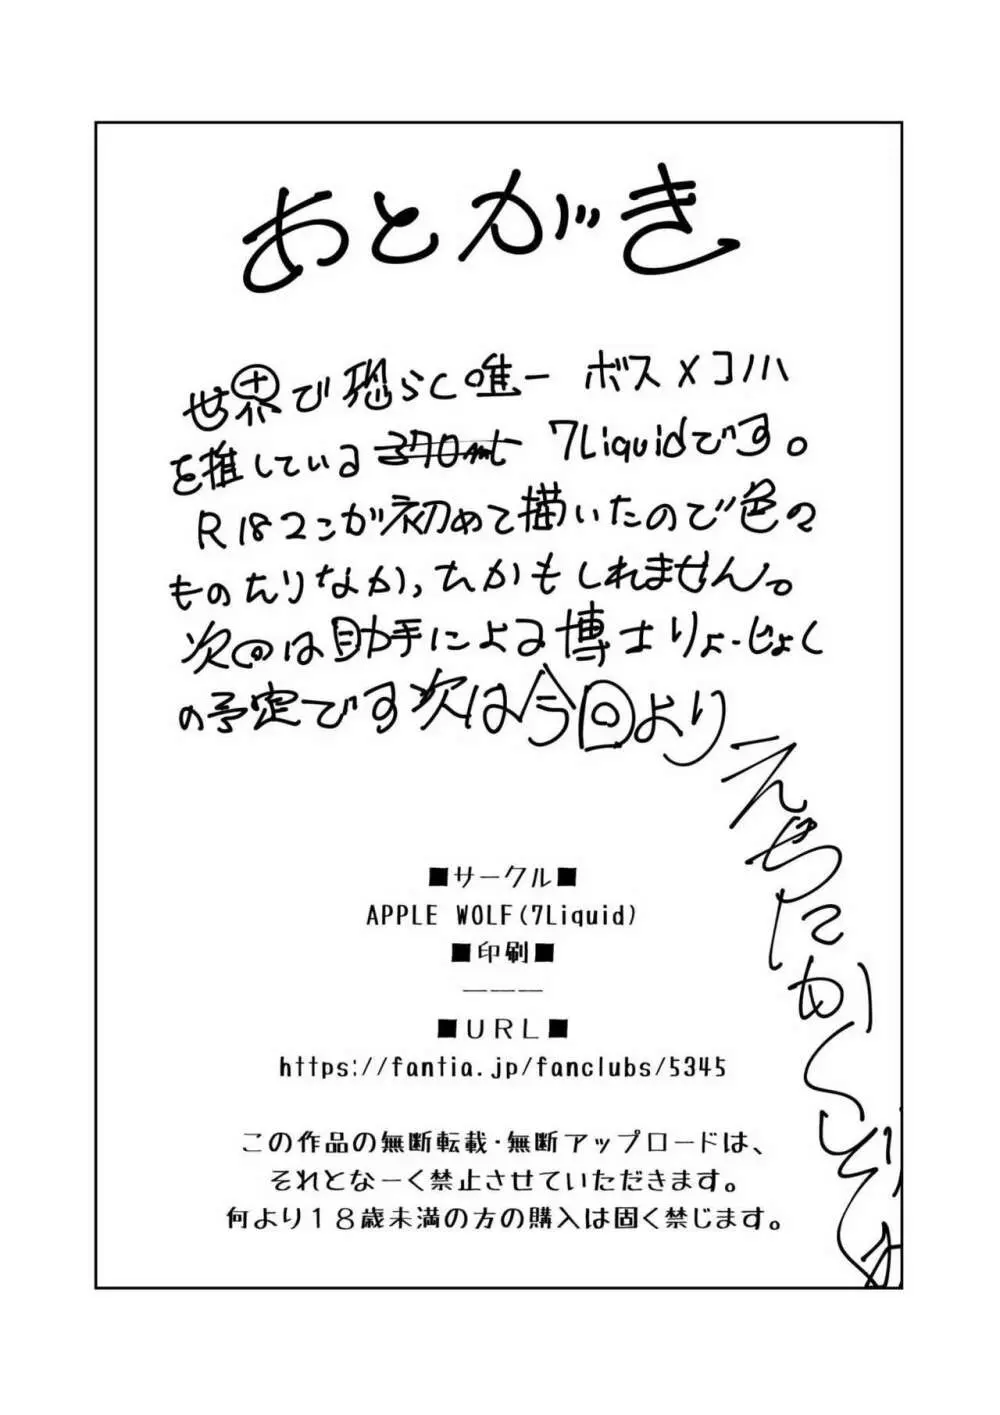 あとがき
世界で恐らく唯一 ボス×コノハ
を推している 370ml 7Liquidです。
R18マンガ初めて描いたので色々
ものたりなかったかもしれません。
次回は助手による博士りょーじょく
の予定です次は今回より
えちちにかく
■サークル■
APPLE WOLF(7Liquid)
■印刷■
———
■URL■
https://fantia.jp/fanclubs/5345
この作品の無断転載・無断アップロードは、
それとなーく禁止させていただきます。
何より18歳未満の方の購入は固く禁じます。